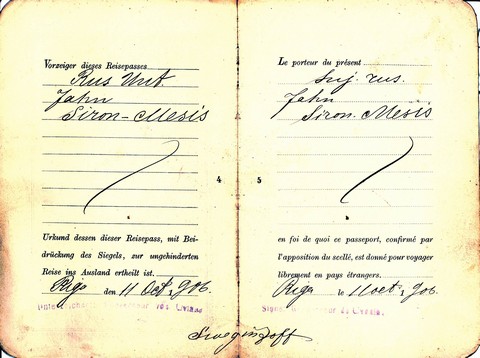 Vorzeiger dieses Reisepasses
Rus Unt.
Jahn
Siron-Mesis
4
a
Urkund dessen dieser Reisepass, mit Bei-
drückung des Siegels, zur ungehinderten
Reise ins Ausland ertheilt ist.
Riga den 11 Oct. 1906.
Le porteur du présent
Suj. rus.
Jahn
Siron-Mesis
5
b
en foi de quoi ce passeport, confirmé par
l'apposition du scellé, est donné pour voyager
librement en pays étrangers.
Riga le 11 oct. 1906.